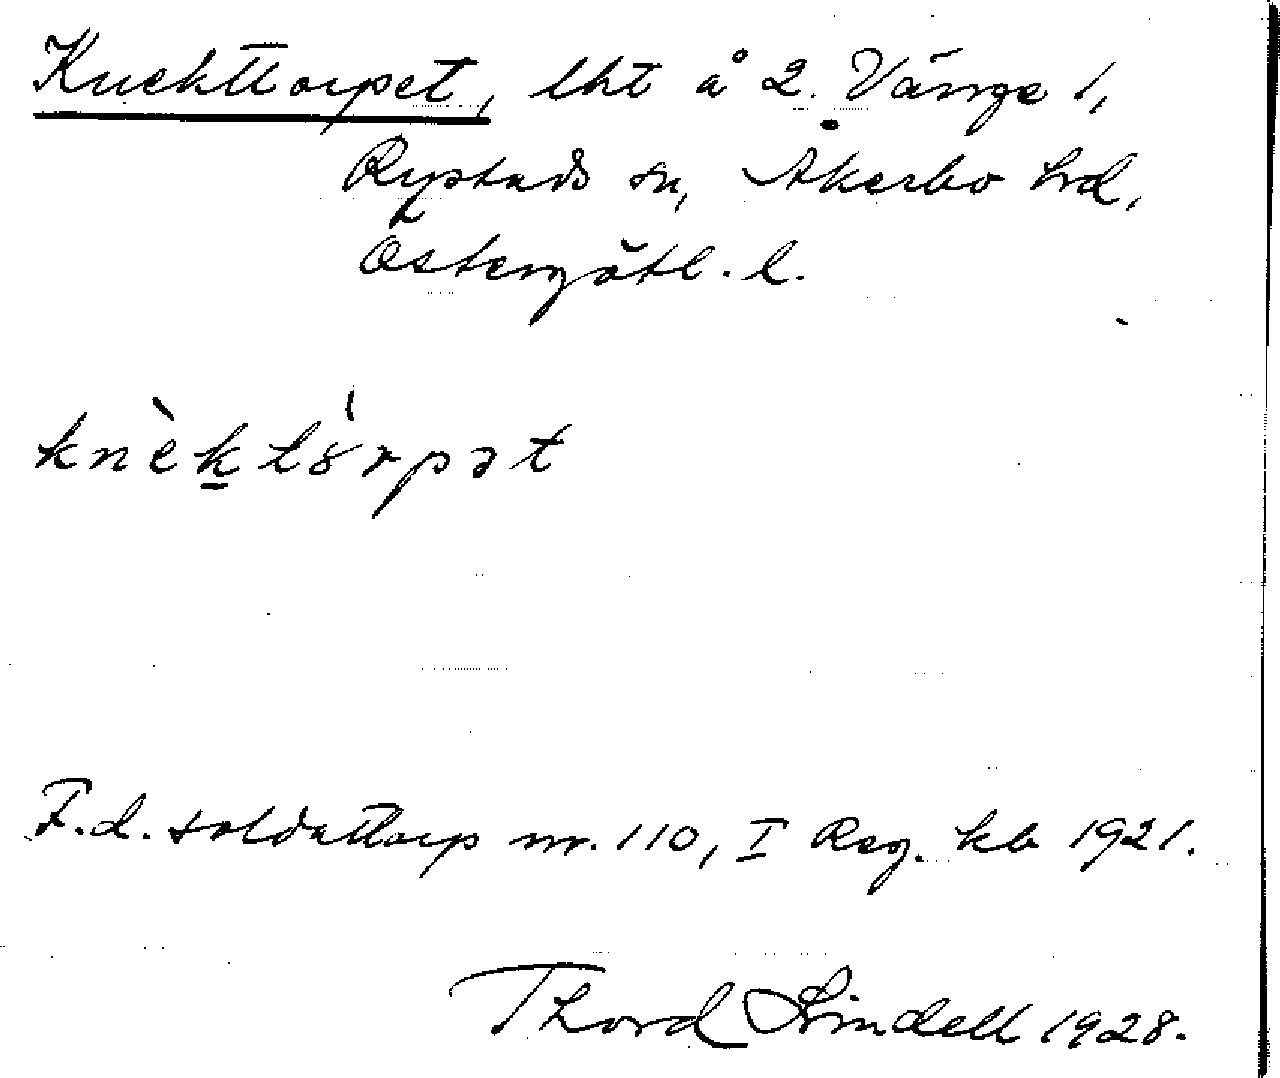 Knekttorpet, lht å 2. Vänge 1,
Rystads sn, Åkerbo hd,
Östergötl. l.
knὲk̲tȣ́rpət
F.d. soldattorp nr. 110, I Reg. kb 1921.
Thord Lindell 1928.